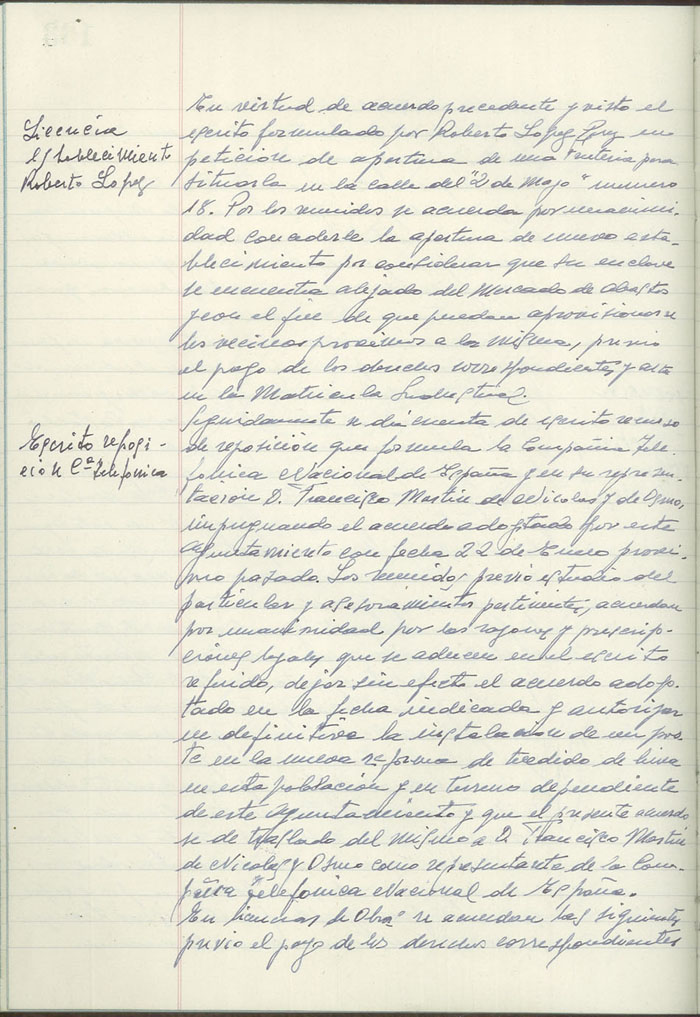 Licencia
Establecimiento
Roberto Lopez
En virtud de acuerdo precedente y visto el
escrito formulado por Roberto Lopez en
peticion de apertura de una para
situarla en la calle del "2 de Mayo" numero
18. Por los reunidos se acuerda por unanimi-
dad concederle la apertura de nuevo esta-
blecimiento por considerar que su enclave
se encuentra alejado del Mercado de Abastos
y con el fin de que puedan aprovisionarse
los vecinos proximos a la misma, previo
el pago de los derechos correspondientes y alta
en la Matricula Industrial.
Escrito reposi-
ción Cª Telefonica
Seguidamente se dá cuenta de escrito recurso
de reposición que formula la Compañia Tele-
fonica Nacional de España y en su represen-
tación D. Francisco Martin de Nicolas y de Osmo,
impugnando el acuerdo adoptado por este
Ayuntamiento con fecha 22 de Enero proxi-
mo pasado. Los reunidos previo estudio del
particular y asesoramientos pertinentes, acuerdan
por unanimidad por las razones y prescrip-
ciones legales que se aducen en el escrito
referido, dejar sin efecto el acuerdo adop-
tado en la fecha indicada y autorizar
en definitiva la instalacion de un pos-
te en la nueva reforma de tendido de linea
en esta población y en terreno dependiente
de este Ayuntamiento y que el presente acuerdo
se de traslado del mismo a D. Francisco Martin
de Nicolas y Osmo como representante de la Com-
pañia Telefonica Nacional de España.
En licencias de Obra" se acuerdan las siguientes
previo el pago de los derechos correspondientes